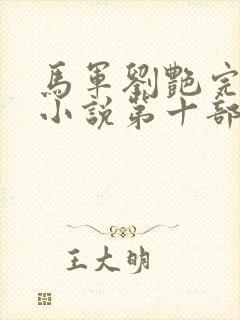 馬軍劉艷完
小說第十部
王大明